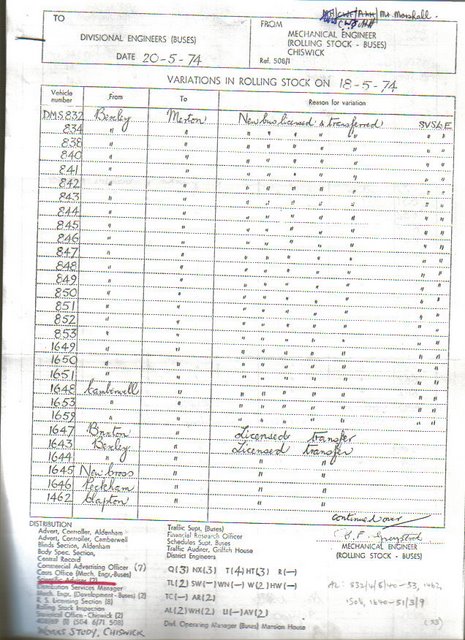 TO
DIVISIONAL ENGINEERS (BUSES)
DATE 20-5-74
Mr. Marshall.
FROM
MECHANICAL ENGINEER
(ROLLING STOCK - BUSES)
CHISWICK
Ref. 508/1
VARIATIONS IN ROLLING STOCK ON 18-5-74
Vehicle number From To Reason for variation
DMS.832 Bexley Merton New bus licensed & transferred
834 " " " " " " " "
838 " " " " " " " "
840 " " " " " " " "
841 " " " " " " " "
842 " " " " " " " "
843 " " " " " " " "
844 " " " " " " " "
845 " " " " " " " "
846 " " " " " " " "
847 " " " " " " " "
848 " " " " " " " "
849 " " " " " " " "
850 " " " " " " " "
851 " " " " " " " "
852 " " " " " " " "
853 " " " " " " " "
1649 " " " " " " " "
1650 " " " " " " " "
1651 " " " " " " " "
1648 Camberwell " " " " " " "
1653 " " " " " " " "
1659 " " " " " " " "
1647 Brixton " Licensed transfer
1643 Bexley " Licensed transfer
1644 " " " "
1645 New Cross " " "
1646 Peckham " " "
1462 Clapton " " "
continued over
MECHANICAL ENGINEER
(ROLLING STOCK - BUSES)
DISTRIBUTION
Advert, Controller, Aldenham
Advert, Controller, Camberwell
Blinds Section, Aldenham
Body Spec. Section,
Central Record
Commercial Advertising Officer (7)
Costs Office (Mech. Engr.-Buses)
Scientific Adviser (2)
Distribution Services Manager
Mech. Engr. (Development - Buses) (2)
R. S. Licensing Section (8)
Rolling Stock Inspection
Divisional Office - Chiswick (2)
WORKS STUDY, CHISWICK
Traffic Supt. (Buses)
Financial Research Officer
Schedules Supt. Buses
Traffic Auditor, Griffith House
District Engineers
Q(3) NX(3) T(4) HT(3) R(—)
TL(2) SW(—) WN(—) W(2) HW(—)
TC(—) AR(2)
AL(2) WH(2) U(—) AV(2)
Divl. Operating Manager (Buses) Mansion House